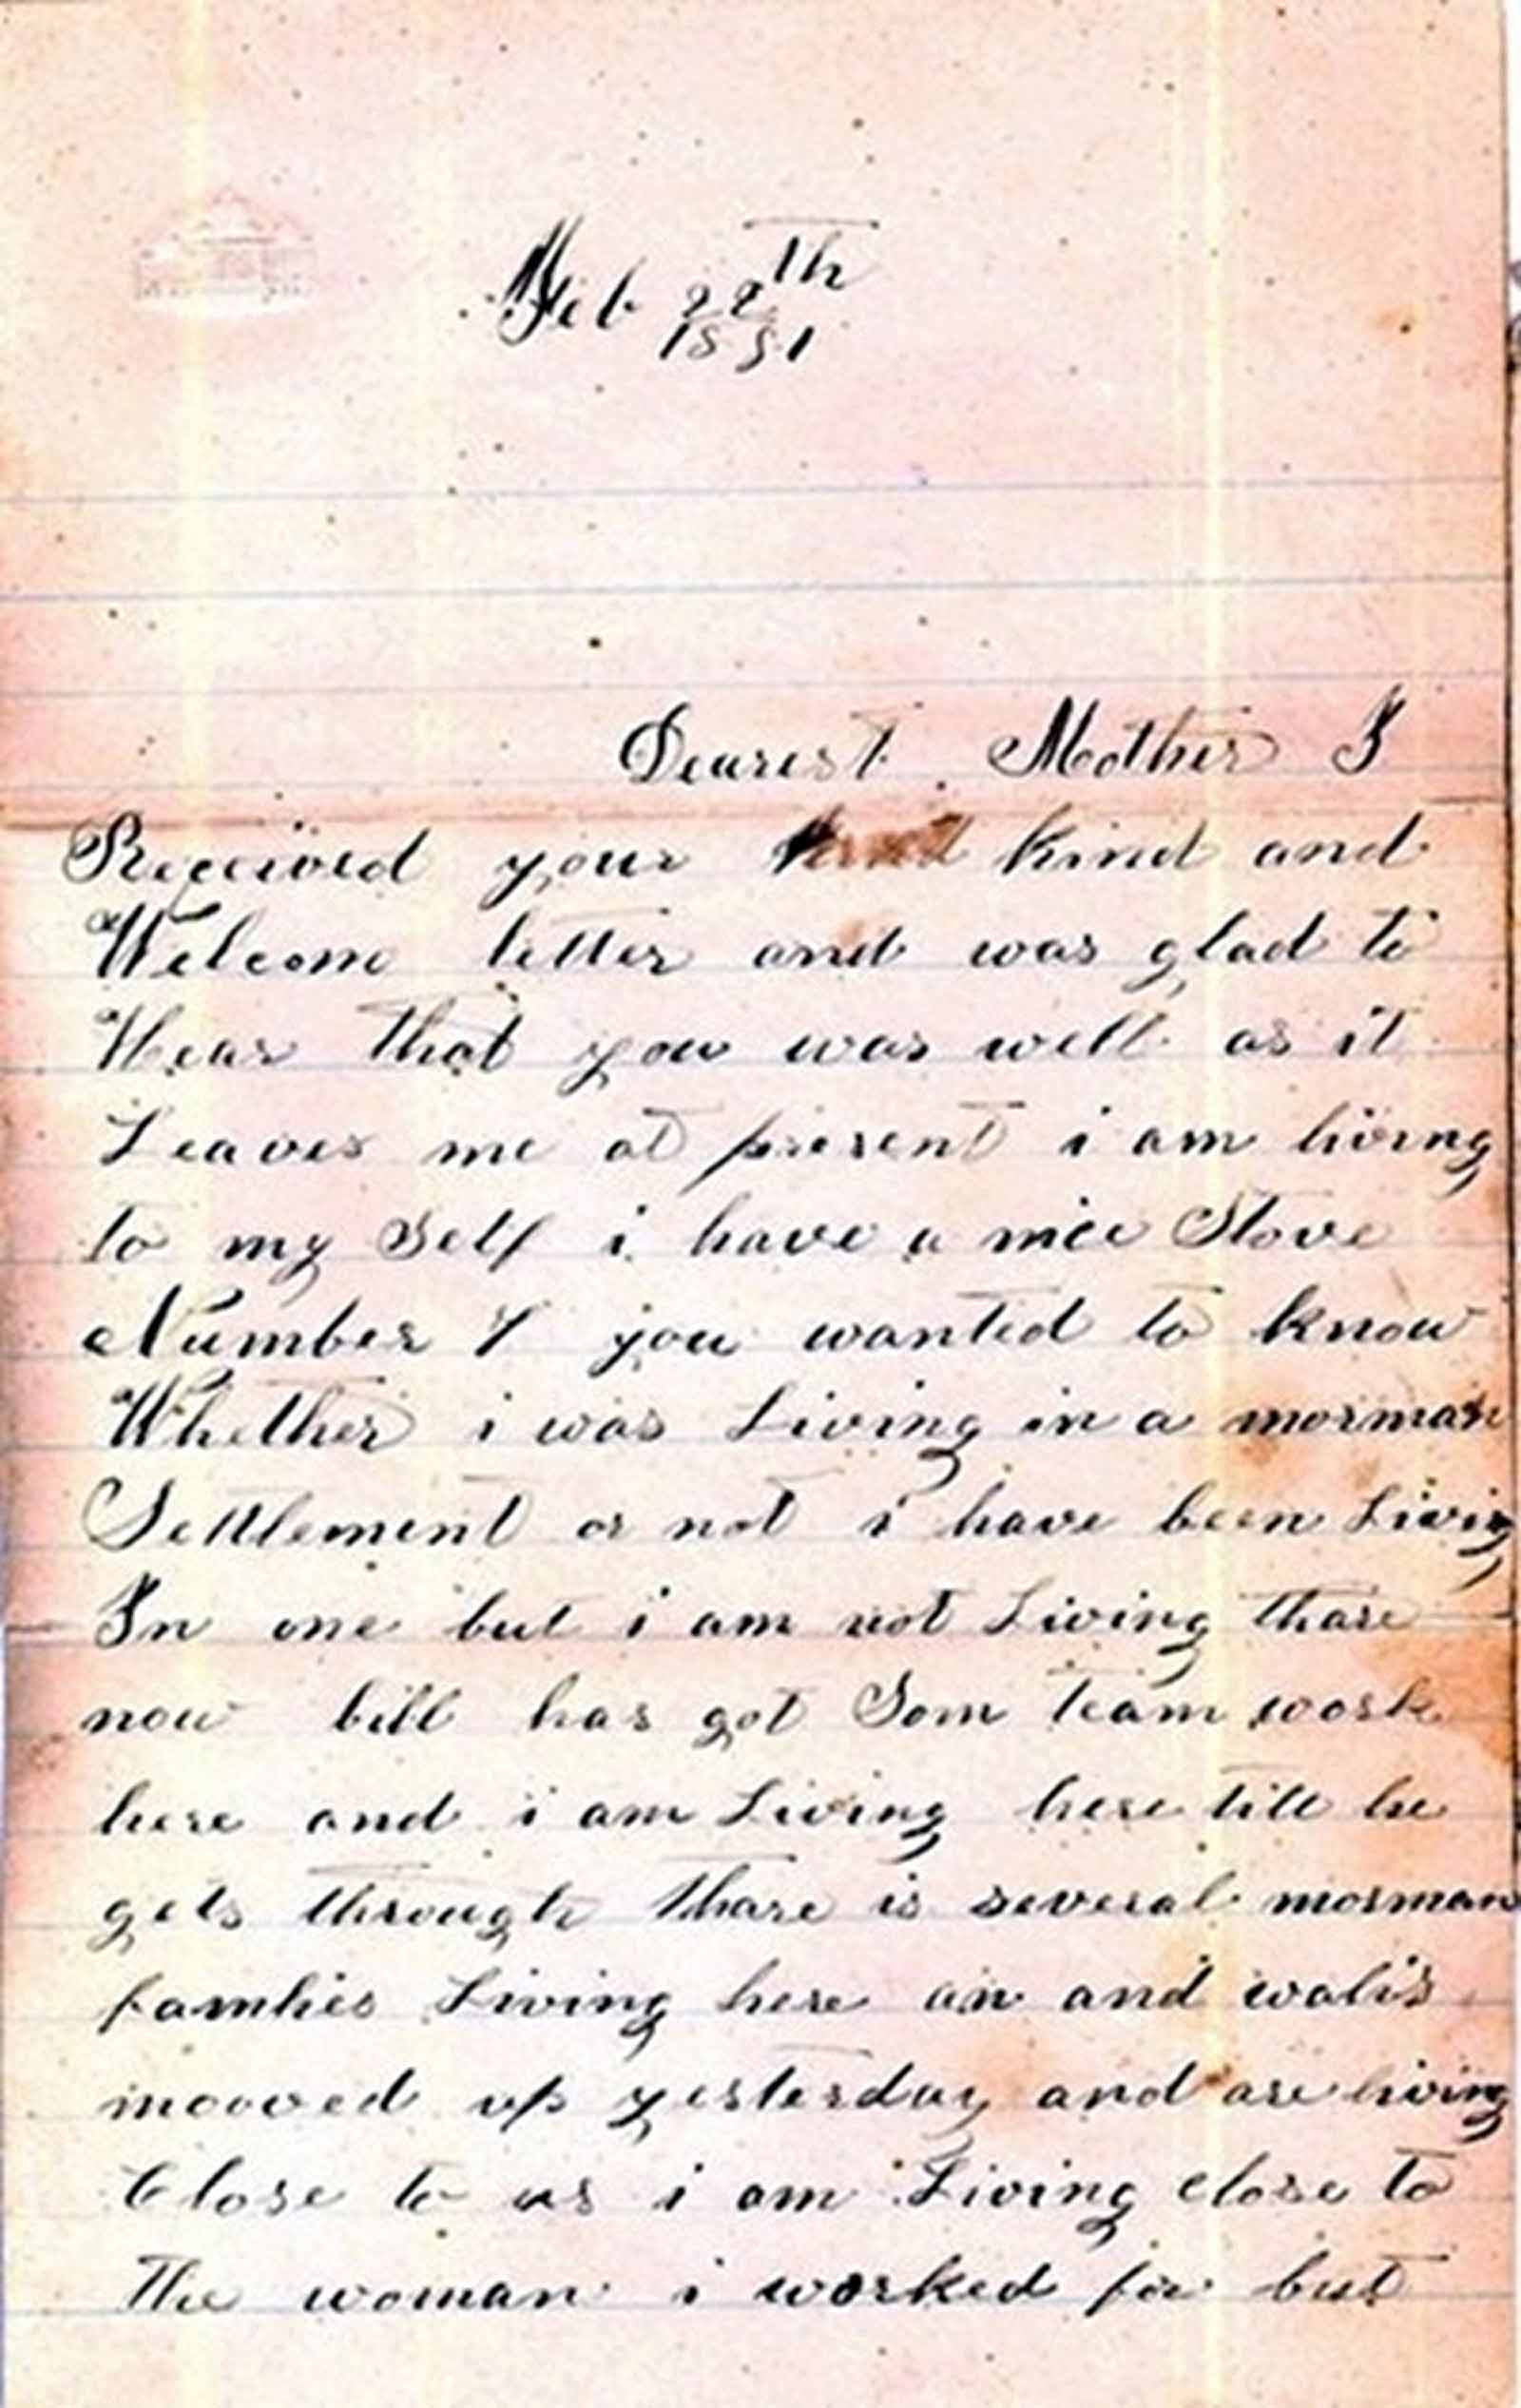 Feb 22th
1881
Dearest Mother I
Received your kind and
Welcom letter and was glad to
Hear that you was well as it
Leaves me at present i am living
to my Self i have a nice Stove
Number 7 you wanted to know
Whether i was Living in a morman
Settlement or not i have been Living
In one but i am not Living thare
now bill has got Som team work
here and i am Living here till he
gets through thare is several morman
families Living here an and
mooved up yesterday and are living
Close to us i am Living close to
The woman i worked for but